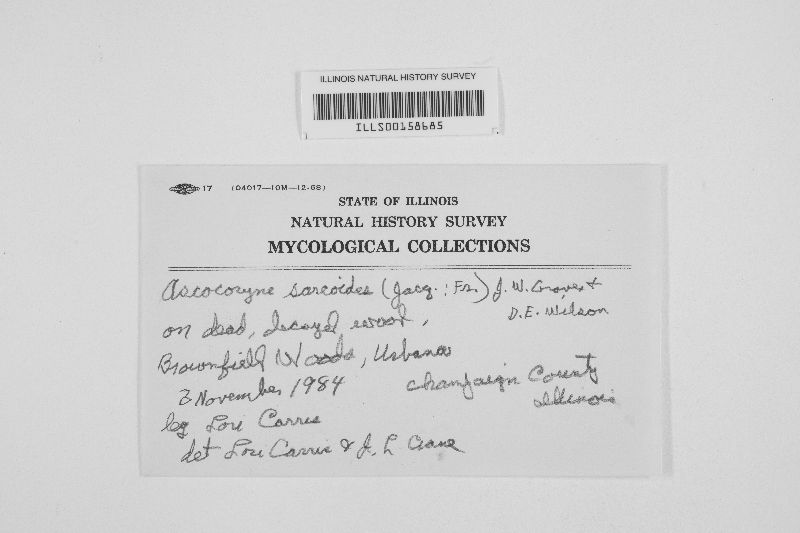 ILLINOIS NATURAL HISTORY SURVEY
ILLS00158685
17 (04017—10M—12-68)
STATE OF ILLINOIS
NATURAL HISTORY SURVEY
MYCOLOGICAL COLLECTIONS
Ascocoryne sarcoides (Jacq.: Fr.) J. W. Groves &
D. E. Wilson
on dead, decayed wood,
Brownfield Woods, Urbana
Champaign County
Illinois
3 November 1984
leg Lori Carris
det Lori Carris & J. L Crane